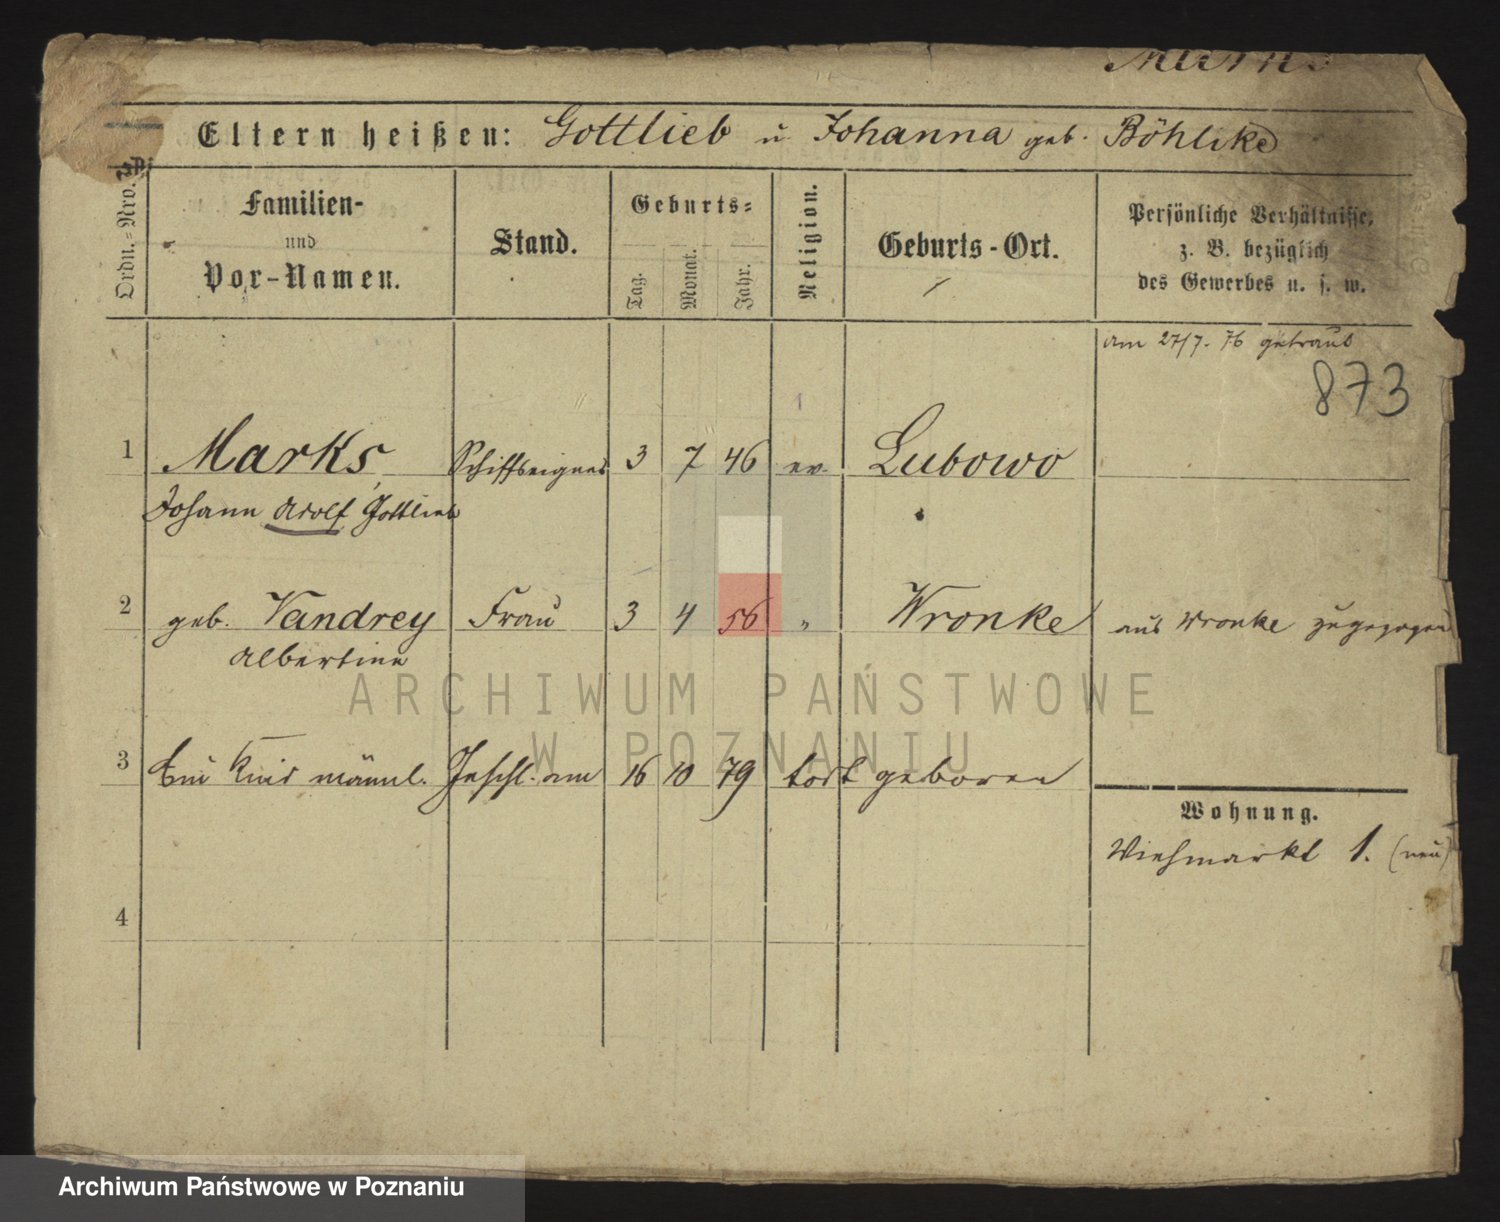 Marks
Eltern heißen: Gottlieb u Johanna geb. Böhlike
Ordn.=Nro.
Familien-
und
Vor-Namen.
Stand.
Geburts=
Tag.
Monat.
Jahr.
Religion.
Geburts-Ort.
Persönliche Verhältnisse,
z. B. bezüglich
des Gewerbes u. s. w.
am 27/7. 76 getraut
873
1 Marks, Schiffseigner 3 7 46 ev. Lubowo
Johann Adolf Gottlieb
2 geb. Vandrey Frau 3 4 56 " Wronke aus Wronke zugezogen
Albertine
ARCHIWUM PAŃSTWOWE
W POZNANIU
3 Ein Kind männl. Geschl. am 16 10 79 todt geboren
Wohnung.
Viehmarkt 1. (neu)
4
Archiwum Państwowe w Poznaniu